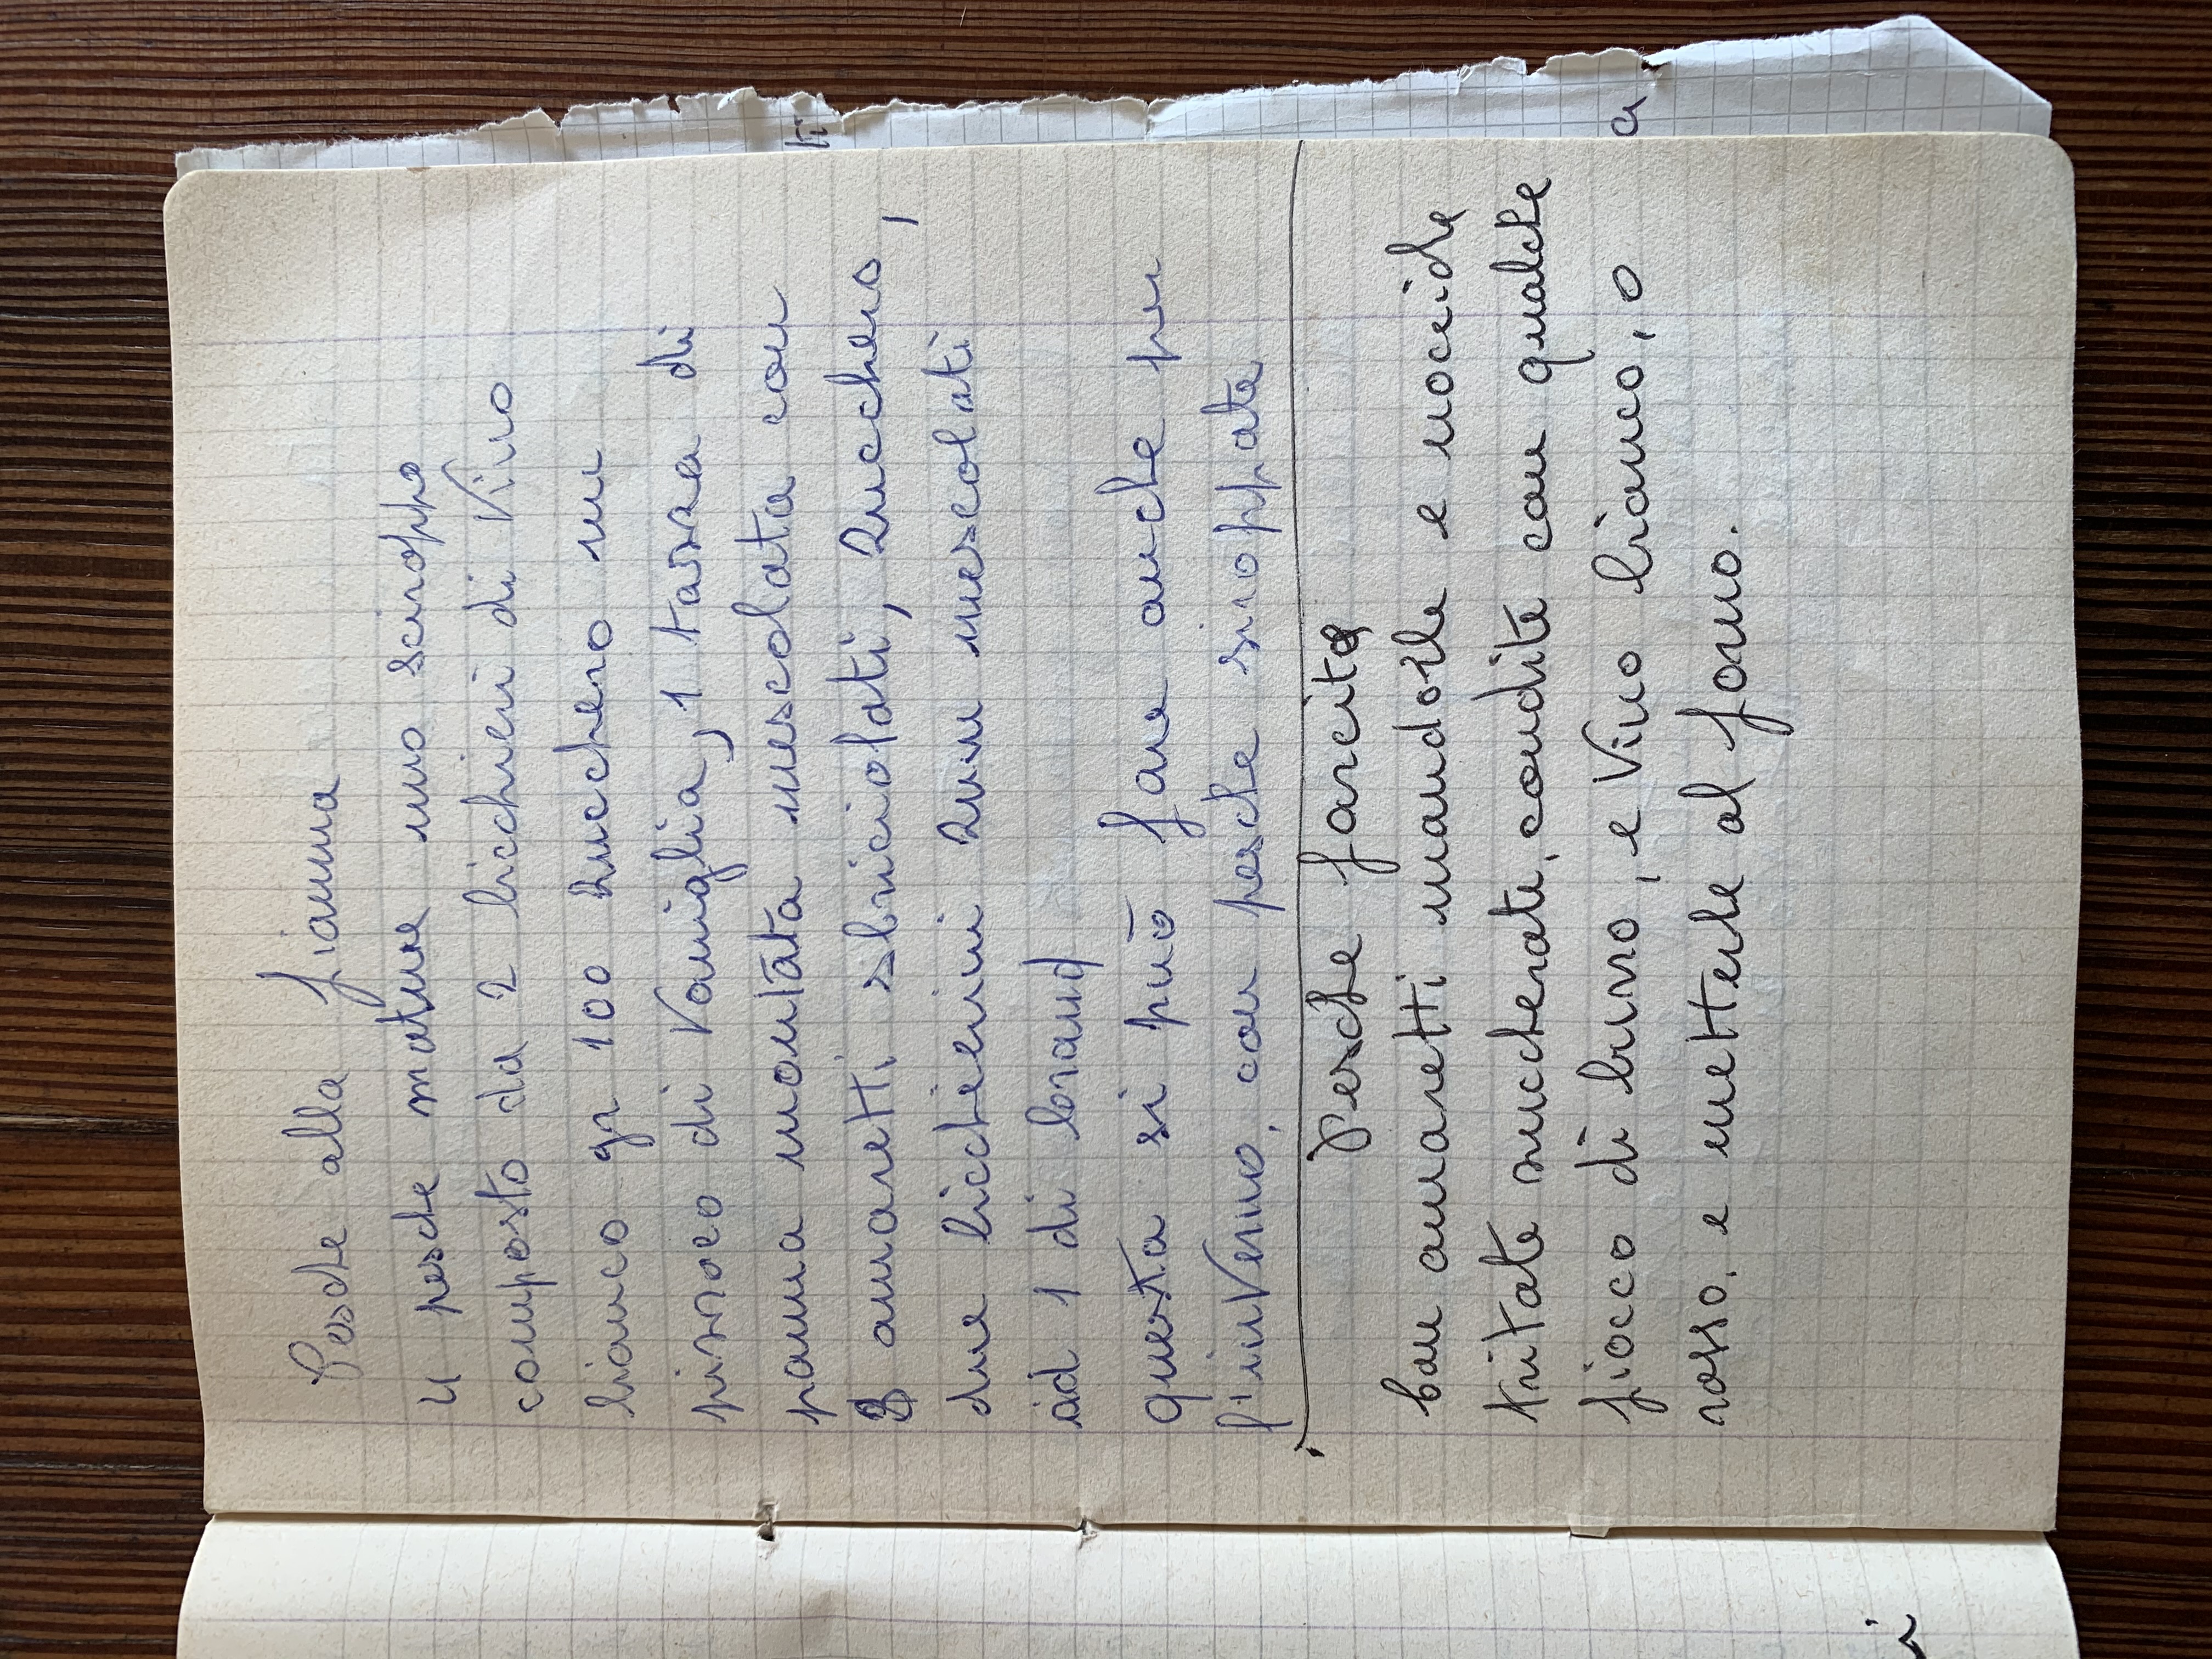 Pesche alla fiamma
4 pesche mature uno sciroppo
composto da 2 bicchieri di Vino
bianco gr 100 zucchero un
pizzoco di Vaniglia, 1 tazza di
panna montata mescolata con
8 amaretti sbriciolati, zucchero,
due bicchierini rum mescolati
ad 1 di brand
questa si può fare anche per
l'inverno, con pesche siroppate
Pesche farcite
Con amaretti mandorle e nocciole
tritate zuccherate, condite con qualche
fiocco di burro, e Vino bianco, o
rosso, e metterle al forno.
ti
a
i